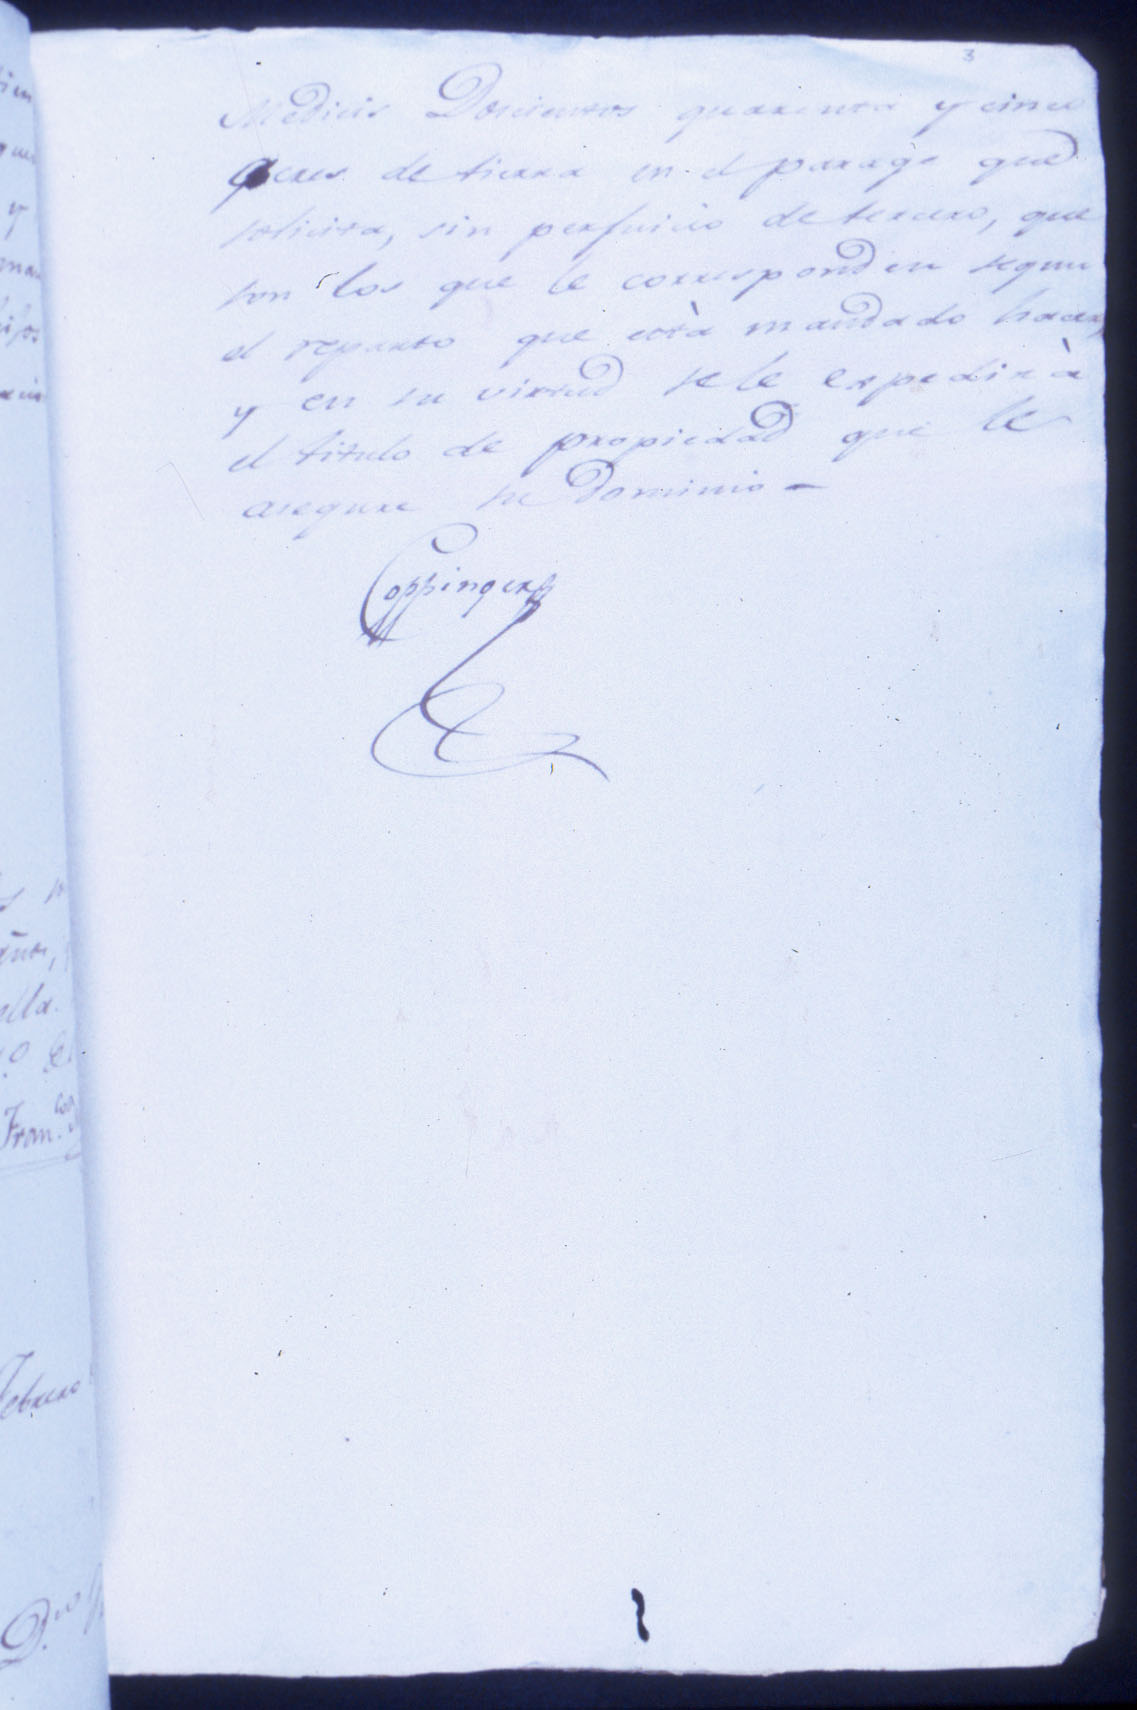 3
Medicis Doscientos quarenta y cinco
acres de tierra en el parage que
solicita, sin perjuicio de tercero, que
son los que le corresponden segun
el reparto que està mandado hacer,
y en su virtud se le expedirà
el titulo de propiedad que le
asegure su dominio –
Coppinger
y
ella.
Fran.co
Febrero